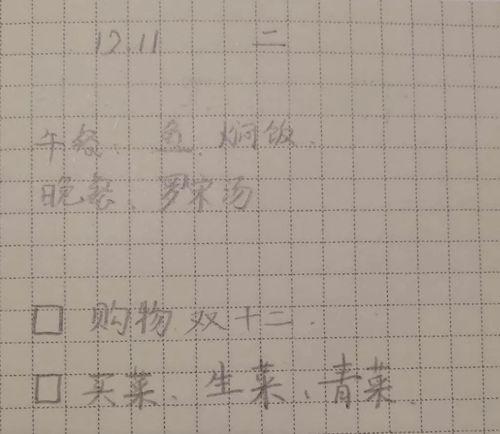 12.11 二
午餐、鱼、焖饭.
晚餐、罗宋汤
购物 双十二.
买菜、生菜、青菜.